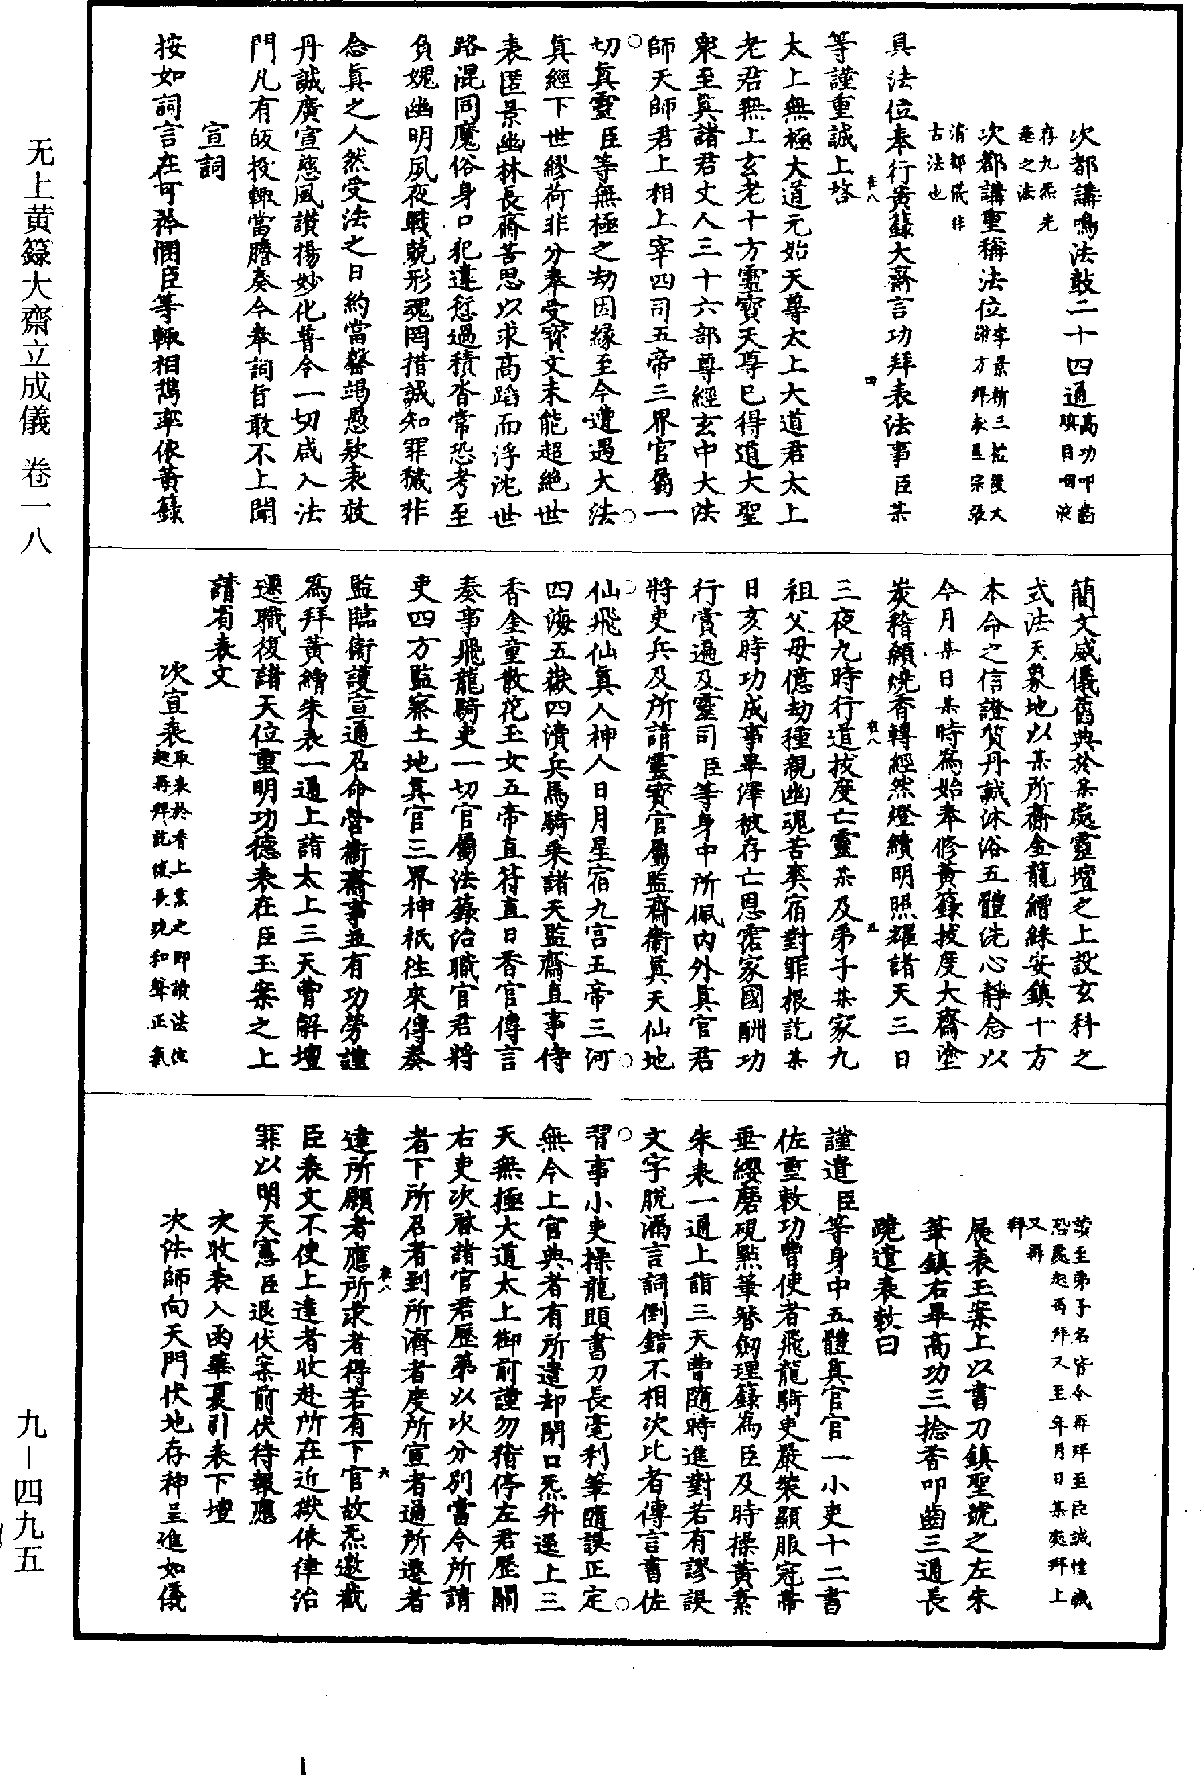 无上黄籙大齋立成儀 卷一八
九—四九五
次都講鳴法鼓二十四通高功叩齒瞑目咽液
存九炁光
垂之法
次都講重稱法位
古法也
具法位奉行黃籙大齋言功拜表法事臣某
等謹重誠上啓
太上無極大道元始天尊太上大道君太上
老君無上玄老十方靈寶天尊已得道大聖
衆至真諸君丈人三十六部尊經玄中大法
師天師君上相上宰四司五帝三界官屬一
切真靈臣等無極之劫因緣至今遭遇大法
真經下世繆荷非分奉受寶文未能超絕世
表匿景幽林長齋苦思以求高蹈而浮沈世
路混同魔俗身口犯違愆過積沓常恐考至
負媿幽明夙夜戰兢形魂罔措誠知罪穢非
念真之人然受法之日約當罄竭愚欵表效
丹誠廣宣慈風讚揚妙化普令一切咸入法
門凡有皈投輒當謄奏今奉詞旨敢不上聞
宣詞
按如詞言在可矜憫臣等輒相攜率依黃籙
簡文威儀舊典於某處靈壇之上設玄科之
式法天象地以某所齋金龍繒綵安鎮十方
本命之信證質丹誠沐浴五體洗心靜念以
今月某日某時爲始奉修黃籙拔度大齋塗
炭稽顙燒香轉經然燈續明照耀諸天三日
三夜九時行道拔度亡靈某及弟子某家九
祖父母億劫種親幽魂苦爽宿對罪根訖某
日亥時功成事畢澤被存亡恩霑家國酬功
行賞遍及靈司臣等身中所佩內外真官君
將吏兵及所請靈寶官屬監齋衛真天仙地
仙飛仙真人神人日月星宿九宮五帝三河
四海五嶽四瀆兵馬騎乘諸天監齋直事侍
香金童散花玉女五帝直符直日香官傳言
奏事飛龍騎吏一切官屬法籙治職官君將
吏四方監察土地真官三界神祇往來傳奏
監臨衛護宣通召命營衛齋事並有功勞謹
爲拜黃繒朱表一通上詣太上三天曹解壇
遷職復諸天位重明功德表在臣玉案之上
請省表文
次宣表取表於香上熏之即讀法位
起再拜訖復長跪和聲正氣
讀至弟子名皆令再拜至臣誠惶誠
恐處起再拜又至年月日某處拜上
又再
拜
展表玉案上以書刀鎮聖號之左朱
筆鎮右畢高功三捻香叩齒三通長
跪遣表敕曰
謹遣臣等身中五體真官官一小吏十二書
佐重敕功曹使者飛龍騎吏嚴裝顯服冠帶
垂纓磨硯點筆簪劔理籙爲臣及時操黃素
朱表一通上詣三天曹隨時進對若有謬誤
文字脫漏言詞倒錯不相次比者傳言書佐
習事小吏操龍頭書刀長毫利筆隨誤正定
無令上官典者有所遣却閉口炁升逕上三
天無極大道太上御前謹勿稽停左君歷關
右吏次啓諸官君歷第以次分別當令所請
者下所召者到所濟者度所宣者通所遷者
達所願者應所求者得若有下官故炁邀截
臣表文不使上達者收赴所在近獄依律治
罪以明天憲臣退伏案前伏待報應
次收表入函華夏引表下壇
次法師向天門伏地存神呈進如儀